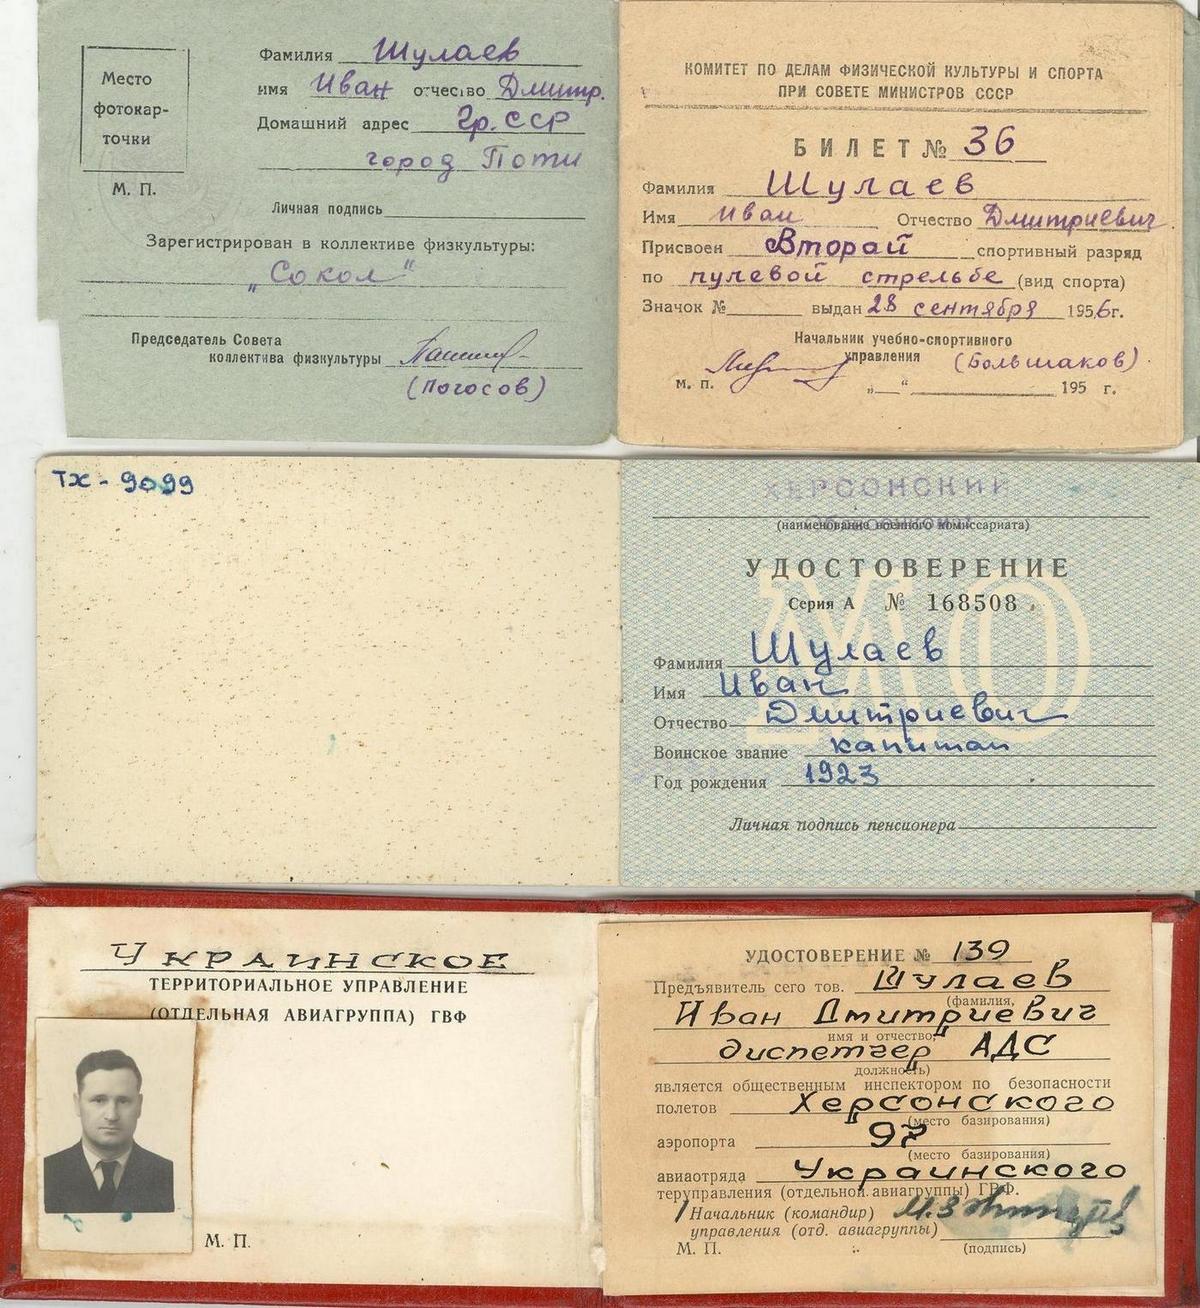 Место
фотокар-
точки
М. П.
Фамилия Шулаев
имя Иван отчество Дмитр.
Домашний адрес Гр. ССР
город Поти
Личная подпись
Зарегистрирован в коллективе физкультуры:
„Сокол“
Председатель Совета
коллектива физкультуры
(Погосов)
КОМИТЕТ ПО ДЕЛАМ ФИЗИЧЕСКОЙ КУЛЬТУРЫ И СПОРТА
ПРИ СОВЕТЕ МИНИСТРОВ СССР
БИЛЕТ № 36
Фамилия Шулаев
Имя Иван Отчество Дмитриевич
Присвоен Второй спортивный разряд
по пулевой стрельбе (вид спорта)
Значок № выдан 28 сентября 1956г.
Начальник учебно-спортивного
управления (Большаков)
м. п. „ “ 195 г.
ТХ - 9099
ХЕРСОНСКИЙ
(наименование военного комиссариата)
УДОСТОВЕРЕНИЕ
Серия А № 168508
МО
Фамилия Шулаев
Имя Иван
Отчество Дмитриевич
Воинское звание капитан
Год рождения 1923
Личная подпись пенсионера
УКРАИНСКОЕ
ТЕРРИТОРИАЛЬНОЕ УПРАВЛЕНИЕ
(ОТДЕЛЬНАЯ АВИАГРУППА) ГВФ
М. П.
УДОСТОВЕРЕНИЕ № 139
Предъявитель сего тов. Шулаев
(фамилия,
Иван Дмитриевич
имя и отчество,
диспетчер АДС
должность)
является общественным инспектором по безопасности
полетов Херсонского
(место базирования)
аэропорта 97
(место базирования)
авиаотряда Украинского
теруправления (отдельной авиагруппы) ГВФ.
Начальник (командир)
управления (отд. авиагруппы)
М. П. (подпись)